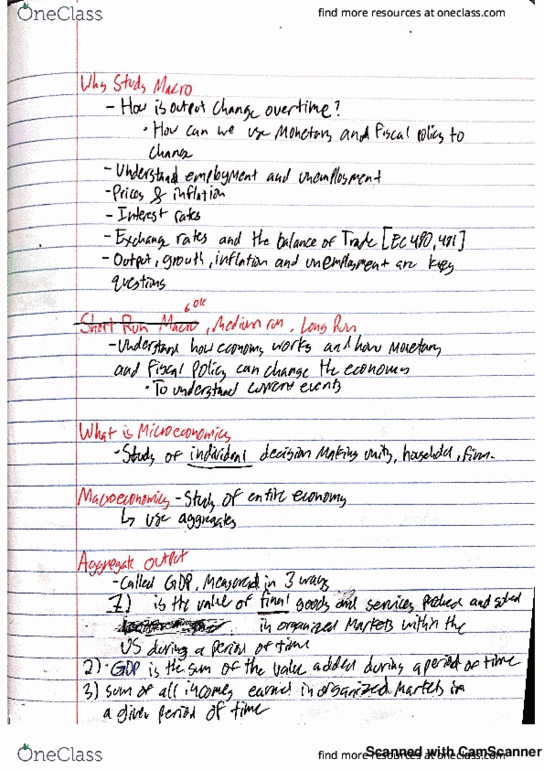 OneClass
find more resources at oneclass.com
Why Study Macro
- How is output change overtime?
• How can we use Monetary and Fiscal policy to
change
- Understand employment and unemployment
- Prices & inflation
- Interest rates
- Exchange rates and the balance of Trade [EC 480, 481]
- Output, growth, inflation and unemployment are key
questions
Short Run Macro, Medium run, Long Run
- Understand how economy works and how Monetary
and Fiscal Policy can change the economy
• To understand current events
What is Microeconomics
- Study of individual decision making units, household, firm.
Macroeconomics - Study of entire economy
↳ use aggregates
Aggregate output
- Called GDP, Measured in 3 ways
1) is the value of final goods and services produced and sold
in organized Markets within the
US during a period of time
2) • GDP is the sum of the value added during a period of time
3) sum of all incomes earned in organized Markets in
a given period of time
OneClass
find more resources at oneclass.com
Scanned with CamScanner